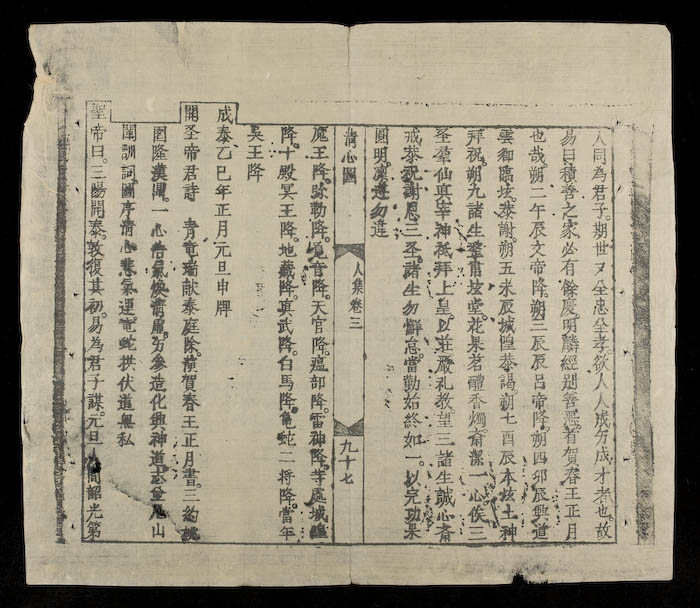 人同為君子。期世又全忠全孝。欲人人成分成才者也。故
易曰積善之家必有餘慶。明麟經別善惡。首賀春王正月
也哉。朔二午辰文帝降。朔三辰辰呂帝降。朔四卯辰興道
雲御臨垓。恭謝。朔五未辰城隍恭謁。朔七酉辰本垓土神
拜祝。朔九諸生整肅垓堂。花果茗醴香燭齋潔一心俟三
圣羣仙真宰神祇拜上皇。以莊嚴礼教望三諸生誠心齋
戒恭祝謝恩三圣。諸生勿懈怠。當勤始終如一。以完功果
圓明。凜遵勿違
清心圖
人集卷三
九十七
魔王降。弥勒降。觀音降。天官降。瘟部降。雷神降。等處城隍
降。十殿冥王降。地藏降。真武降。白馬降。龜蛇二將降。當年
吳王降
成泰乙巳年正月元旦申牌
開圣帝君詩 青竜瑞献泰庭除。慶賀春王正月書。三約
隆漢闕。一心浩氣煥清居。分參造化興神道。志 山
闡訓詞圖序清心悲氣運。竜蛇拱伏道無私
聖帝曰。三陽開泰。敦復其初。易為君子謀。元旦人間韶光第